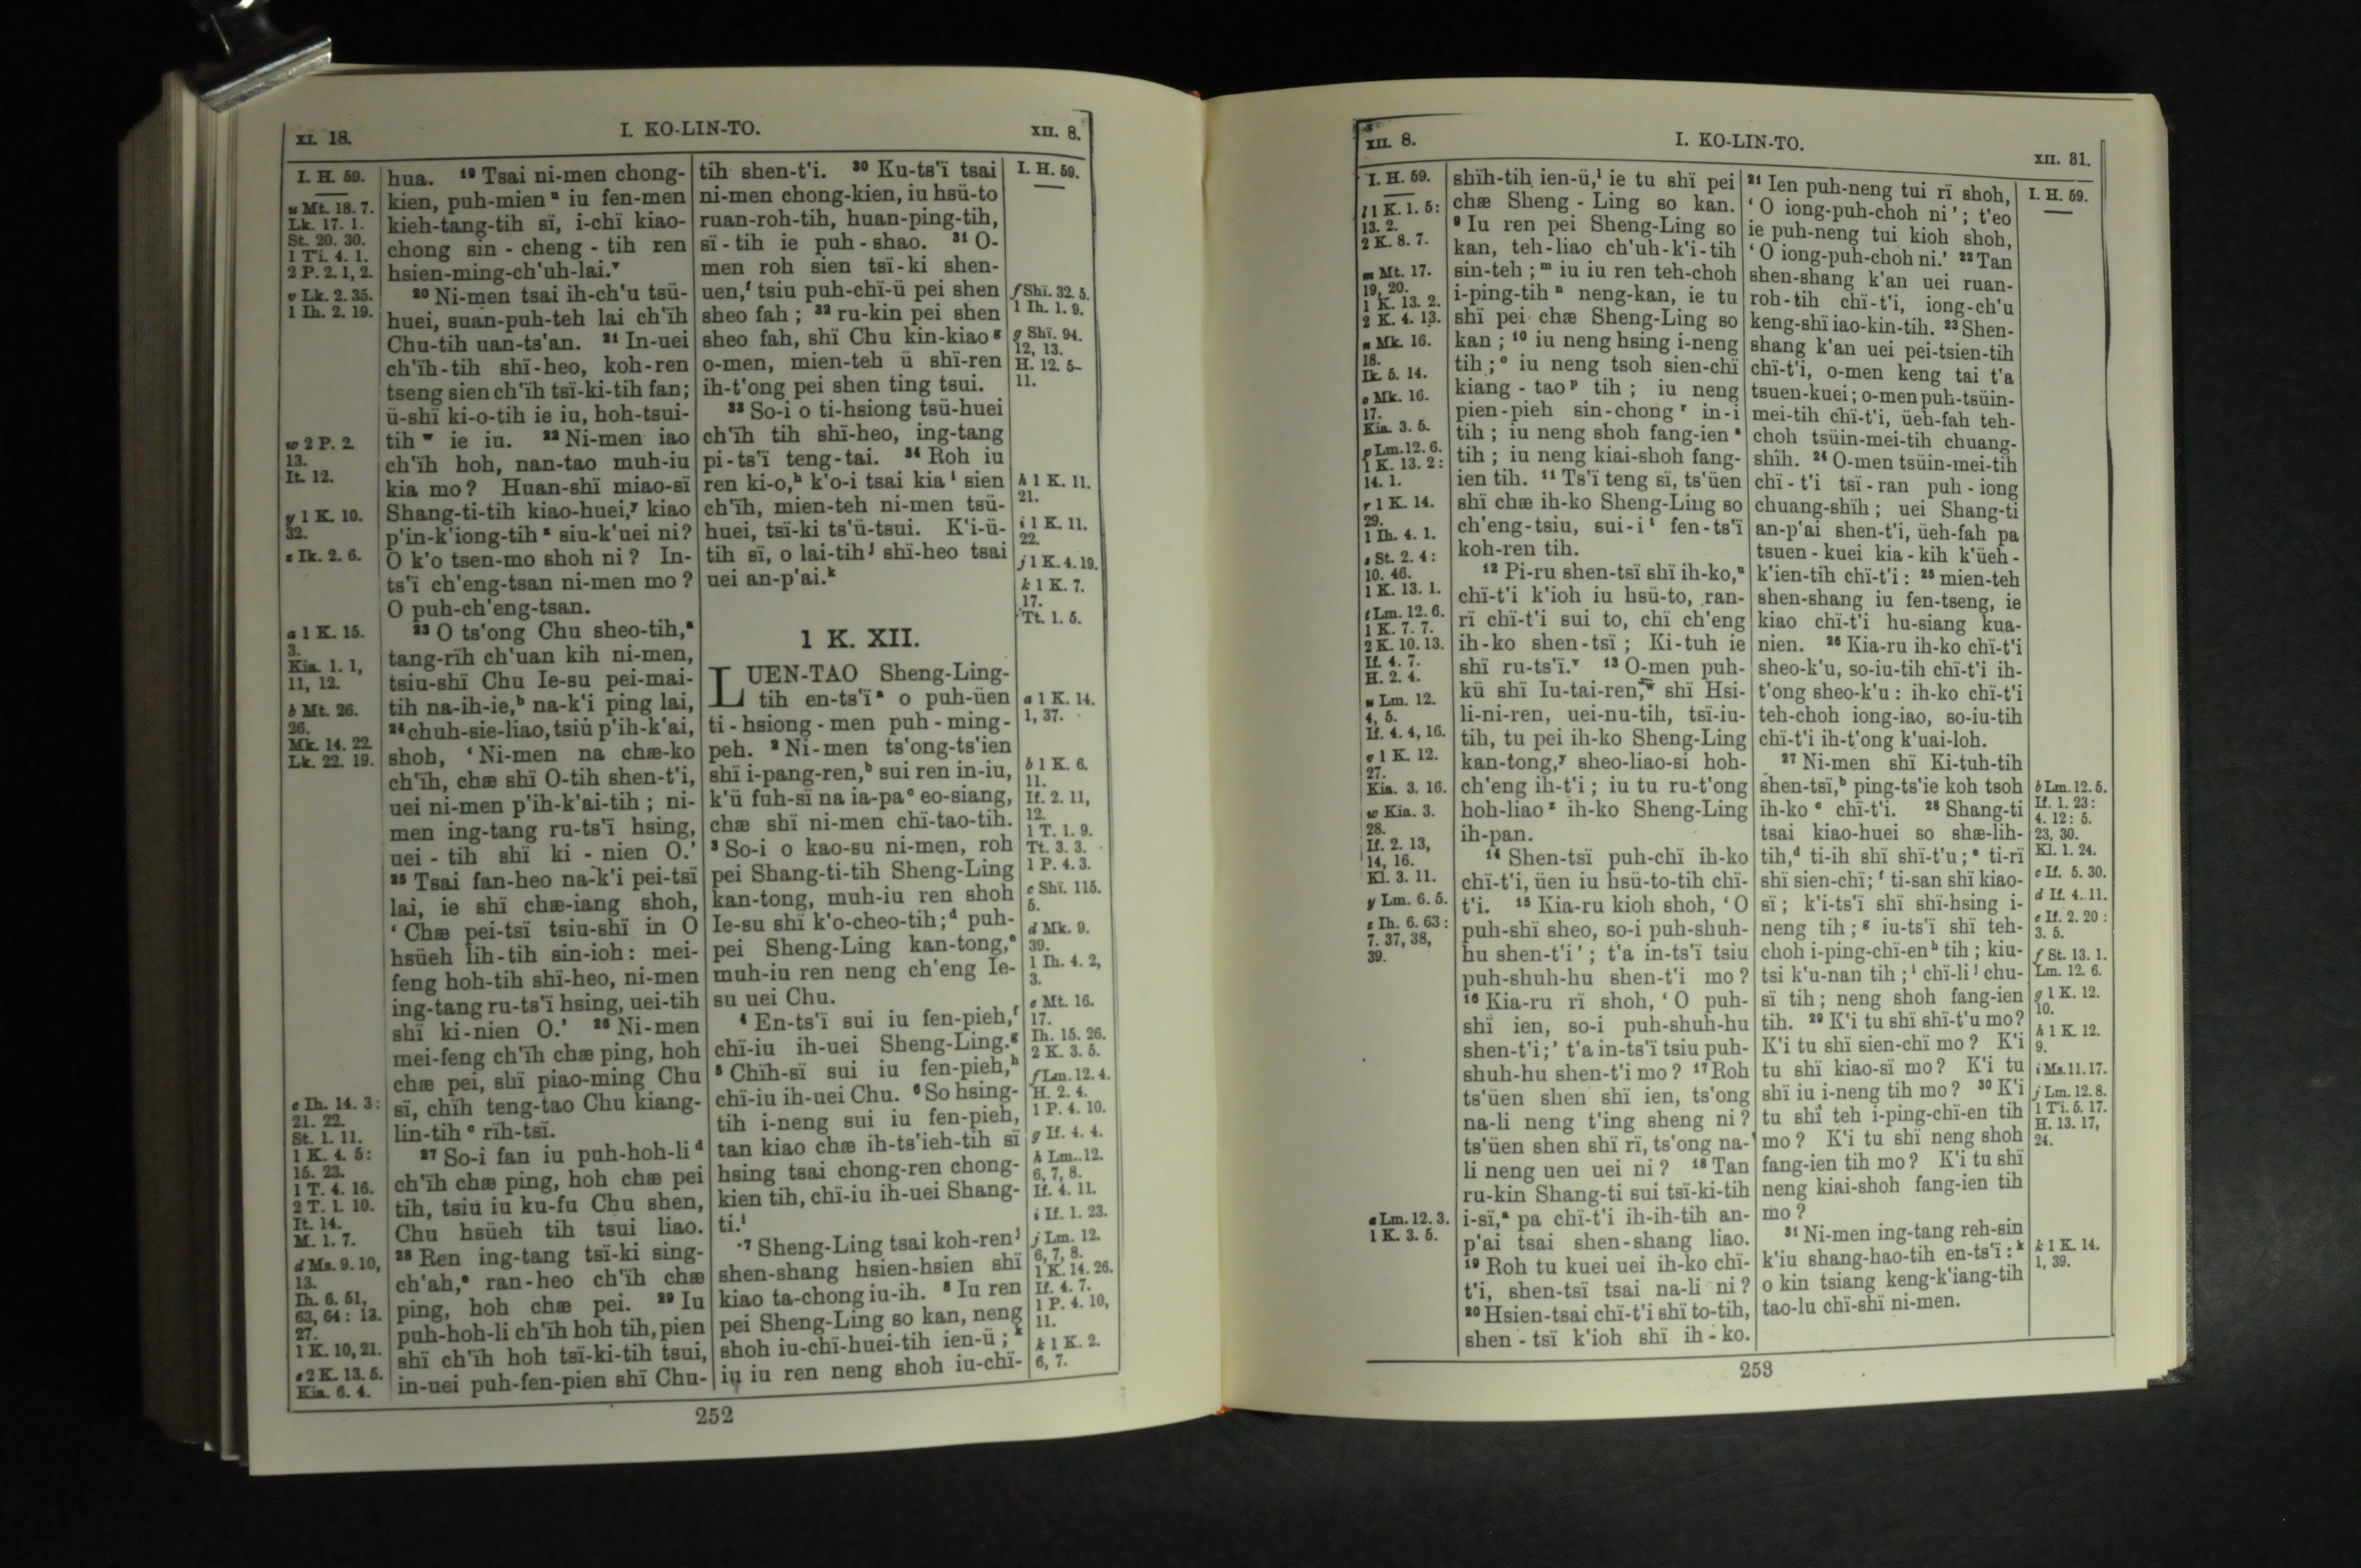 XI. 18.
I. KO-LIN-TO.
XII. 8.
I. H. 59.
u Mt. 18. 7.
Lk. 17. 1.
St. 20. 30.
1 Ti. 4. 1.
2 P. 2. 1, 2.
v Lk. 2. 35.
1 Ih. 2. 19.
w 2 P. 2.
13.
It. 12.
y 1 K. 10.
32.
z Ik. 2. 6.
a 1 K. 15.
3.
Kia. 1. 1,
11, 12.
b Mt. 26.
26.
Mk. 14. 22.
Lk. 22. 19.
c Ih. 14. 3:
21. 22.
St. 1. 11.
1 K. 4. 5:
15. 23.
1 T. 4. 16.
2 T. 1. 10.
It. 14.
M. 1. 7.
d Ms. 9. 10,
13.
Ih. 6. 51,
63, 64: 13.
27.
1 K. 10, 21.
e 2 K. 13. 5.
Kia. 6. 4.
hua. 19 Tsai ni-men chong-
kien, puh-mien u iu fen-men
kieh-tang-tih sï, i-chï kiao-
chong sin-cheng-tih ren
hsien-ming-ch'uh-lai.v
20 Ni-men tsai ih-ch'u tsü-
huei, suan-puh-teh lai ch'ïh
Chu-tih uan-ts'an. 21 In-uei
ch'ïh-tih shï-heo, koh-ren
tseng sien ch'ïh tsï-ki-tih fan;
ü-shï ki-o-tih ie iu, hoh-tsui-
tih w ie iu. 22 Ni-men iao
ch'ïh hoh, nan-tao muh-iu
kia mo? Huan-shï miao-sï
Shang-ti-tih kiao-huei,y kiao
p'in-k'iong-tih z siu-k'uei ni?
O k'o tsen-mo shoh ni? In-
ts'ï ch'eng-tsan ni-men mo?
O puh-ch'eng-tsan.
23 O ts'ong Chu sheo-tih,a
tang-rïh ch'uan kih ni-men,
tsiu-shï Chu Ie-su pei-mai-
tih na-ih-ie,b na-k'i ping lai,
24 chuh-sie-liao, tsiu p'ih-k'ai,
shoh, ‘Ni-men na chæ-ko
ch'ïh, chæ shï O-tih shen-t'i,
uei ni-men p'ih-k'ai-tih; ni-
men ing-tang ru-ts'ï hsing,
uei-tih shï ki-nien O.’
25 Tsai fan-heo na-k'i pei-tsï
lai, ie shï chæ-iang shoh,
‘Chæ pei-tsï tsiu-shï in O
hsüeh lih-tih sin-ioh: mei-
feng hoh-tih shï-heo, ni-men
ing-tang ru-ts'ï hsing, uei-tih
shï ki-nien O.’ 26 Ni-men
mei-feng ch'ïh chæ ping, hoh
chæ pei, shï piao-ming Chu
sï, chïh teng-tao Chu kiang-
lin-tih c rïh-tsï.
27 So-i fan iu puh-hoh-li d
ch'ïh chæ ping, hoh chæ pei
tih, tsiu iu ku-fu Chu shen,
Chu hsüeh tih tsui liao.
28 Ren ing-tang tsï-ki sing-
ch'ah,e ran-heo ch'ïh chæ
ping, hoh chæ pei. 29 Iu
puh-hoh-li ch'ïh hoh tih, pien
shï ch'ïh hoh tsï-ki-tih tsui,
in-uei puh-fen-pien shï Chu-
tih shen-t'i. 30 Ku-ts'ï tsai
ni-men chong-kien, iu hsü-to
ruan-roh-tih, huan-ping-tih,
sï-tih ie puh-shao. 31 O-
men roh sien tsï-ki shen-
uen,f tsiu puh-chï-ü pei shen
sheo fah; 32 ru-kin pei shen
sheo fah, shï Chu kin-kiao g
o-men, mien-teh ü shï-ren
ih-t'ong pei shen ting tsui.
33 So-i o ti-hsiong tsü-huei
ch'ïh tih shï-heo, ing-tang
pi-ts'ï teng-tai. 34 Roh iu
ren ki-o,h k'o-i tsai kia i sien
ch'ïh, mien-teh ni-men tsü-
huei, tsï-ki ts'ü-tsui. K'i-ü-
tih sï, o lai-tih j shï-heo tsai
uei an-p'ai.k
1 K. XII.
LUEN-TAO Sheng-Ling-
tih en-ts'ï a o puh-üen
ti-hsiong-men puh-ming-
peh. 2 Ni-men ts'ong-ts'ien
shï i-pang-ren,b sui ren in-iu,
k'ü fuh-sï na ia-pa c eo-siang,
chæ shï ni-men chï-tao-tih.
3 So-i o kao-su ni-men, roh
pei Shang-ti-tih Sheng-Ling
kan-tong, muh-iu ren shoh
Ie-su shï k'o-cheo-tih;d puh-
pei Sheng-Ling kan-tong,e
muh-iu ren neng ch'eng Ie-
su uei Chu.
4 En-ts'ï sui iu fen-pieh,f
chï-iu ih-uei Sheng-Ling.g
5 Chïh-sï sui iu fen-pieh,h
chï-iu ih-uei Chu. 6 So hsing-
tih i-neng sui iu fen-pieh,
tan kiao chæ ih-ts'ieh-tih sï
hsing tsai chong-ren chong-
kien tih, chï-iu ih-uei Shang-
ti.i
7 Sheng-Ling tsai koh-ren j
shen-shang hsien-hsien shï
kiao ta-chong iu-ih. 8 Iu ren
pei Sheng-Ling so kan, neng
shoh iu-chï-huei-tih ien-ü;k
iu iu ren neng shoh iu-chï-
I. H. 59.
f Shï. 32. 5.
1 Ih. 1. 9.
g Shï. 94.
12, 13.
H. 12. 5–
11.
h 1 K. 11.
21.
i 1 K. 11.
22.
j 1 K. 4. 19.
k 1 K. 7.
17.
Tt. 1. 5.
a 1 K. 14.
1, 37.
b 1 K. 6.
11.
If. 2. 11,
12.
1 T. 1. 9.
Tt. 3. 3.
1 P. 4. 3.
c Shï. 115.
5.
d Mk. 9.
39.
1 Ih. 4. 2,
3.
e Mt. 16.
17.
Ih. 15. 26.
2 K. 3. 5.
f Lm. 12. 4.
H. 2. 4.
1 P. 4. 10.
g If. 4. 4.
h Lm. 12.
6, 7, 8.
If. 4. 11.
i If. 1. 23.
j Lm. 12.
6, 7, 8.
1 K. 14. 26.
If. 4. 7.
1 P. 4. 10,
11.
k 1 K. 2.
6, 7.
252
XII. 8.
I. KO-LIN-TO.
XII. 31.
I. H. 59.
l 1 K. 1. 5:
13. 2.
2 K. 8. 7.
m Mt. 17.
19, 20.
1 K. 13. 2.
2 K. 4. 13.
n Mk. 16.
18.
Ik. 5. 14.
o Mk. 16.
17.
Kia. 3. 5.
p Lm. 12. 6.
1 K. 13. 2:
14. 1.
r 1 K. 14.
29.
1 Ih. 4. 1.
s St. 2. 4:
10. 46.
1 K. 13. 1.
t Lm. 12. 6.
1 K. 7. 7.
2 K. 10. 13.
If. 4. 7.
H. 2. 4.
u Lm. 12.
4, 5.
If. 4. 4, 16.
v 1 K. 12.
27.
Kia. 3. 16.
w Kia. 3.
28.
If. 2. 13,
14, 16.
Kl. 3. 11.
y Lm. 6. 5.
z Ih. 6. 63:
7. 37, 38,
39.
a Lm. 12. 3.
1 K. 3. 5.
shïh-tih ien-ü,l ie tu shï pei
chæ Sheng-Ling so kan.
9 Iu ren pei Sheng-Ling so
kan, teh-liao ch'uh-k'i-tih
sin-teh;m iu iu ren teh-choh
i-ping-tih n neng-kan, ie tu
shï pei chæ Sheng-Ling so
kan; 10 iu neng hsing i-neng
tih;o iu neng tsoh sien-chï
kiang-tao p tih; iu neng
pien-pieh sin-chong r in-i
tih; iu neng shoh fang-ien s
tih; iu neng kiai-shoh fang-
ien tih. 11 Ts'ï teng sï, ts'üen
shï chæ ih-ko Sheng-Ling so
ch'eng-tsiu, sui-i t fen-ts'ï
koh-ren tih.
12 Pi-ru shen-tsï shï ih-ko,u
chï-t'i k'ioh iu hsü-to, ran-
rï chï-t'i sui to, chï ch'eng
ih-ko shen-tsï; Ki-tuh ie
shï ru-ts'ï.v 13 O-men puh-
kü shï Iu-tai-ren,w shï Hsi-
li-ni-ren, uei-nu-tih, tsï-iu-
tih, tu pei ih-ko Sheng-Ling
kan-tong,y sheo-liao-si hoh-
ch'eng ih-t'i; iu tu ru-t'ong
hoh-liao z ih-ko Sheng-Ling
ih-pan.
14 Shen-tsï puh-chï ih-ko
chï-t'i, üen iu hsü-to-tih chï-
t'i. 15 Kia-ru kioh shoh, ‘O
puh-shï sheo, so-i puh-shuh-
hu shen-t'i’; t'a in-ts'ï tsiu
puh-shuh-hu shen-t'i mo?
16 Kia-ru rï shoh, ‘O puh-
shï ien, so-i puh-shuh-hu
shen-t'i;’ t'a in-ts'ï tsiu puh-
shuh-hu shen-t'i mo? 17 Roh
ts'üen shen shï ien, ts'ong
na-li neng t'ing sheng ni?
ts'üen shen shï rï, ts'ong na-
li neng uen uei ni? 18 Tan
ru-kin Shang-ti sui tsï-ki-tih
i-sï,a pa chï-t'i ih-ih-tih an-
p'ai tsai shen-shang liao.
19 Roh tu kuei uei ih-ko chï-
t'i, shen-tsï tsai na-li ni?
20 Hsien-tsai chï-t'i shï to-tih,
shen-tsï k'ioh shï ih-ko.
21 Ien puh-neng tui rï shoh,
‘O iong-puh-choh ni’; t'eo
ie puh-neng tui kioh shoh,
‘O iong-puh-choh ni.’ 22 Tan
shen-shang k'an uei ruan-
roh-tih chï-t'i, iong-ch'u
keng-shï iao-kin-tih. 23 Shen-
shang k'an uei pei-tsien-tih
chï-t'i, o-men keng tai t'a
tsuen-kuei; o-men puh-tsüin-
mei-tih chï-t'i, üeh-fah teh-
choh tsüin-mei-tih chuang-
shïh. 24 O-men tsüin-mei-tih
chï-t'i tsï-ran puh-iong
chuang-shïh; uei Shang-ti
an-p'ai shen-t'i, üeh-fah pa
tsuen-kuei kia-kih k'üeh-
k'ien-tih chï-t'i: 25 mien-teh
shen-shang iu fen-tseng, ie
kiao chï-t'i hu-siang kua-
nien. 26 Kia-ru ih-ko chï-t'i
sheo-k'u, so-iu-tih chï-t'i ih-
t'ong sheo-k'u: ih-ko chï-t'i
teh-choh iong-iao, so-iu-tih
chï-t'i ih-t'ong k'uai-loh.
27 Ni-men shï Ki-tuh-tih
shen-tsï,b ping-ts'ie koh tsoh
ih-ko c chï-t'i. 28 Shang-ti
tsai kiao-huei so shæ-lih-
tih,d ti-ih shï shï-t'u;e ti-rï
shï sien-chï;f ti-san shï kiao-
sï; k'i-ts'ï shï shï-hsing i-
neng tih;g iu-ts'ï shï teh-
choh i-ping-chï-en h tih; kiu-
tsi k'u-nan tih;i chï-li j chu-
sï tih; neng shoh fang-ien
tih. 29 K'i tu shï shï-t'u mo?
K'i tu shï sien-chï mo? K'i
tu shï kiao-sï mo? K'i tu
shï iu i-neng tih mo? 30 K'i
tu shï teh i-ping-chï-en tih
mo? K'i tu shï neng shoh
fang-ien tih mo? K'i tu shï
neng kiai-shoh fang-ien tih
mo?
31 Ni-men ing-tang reh-sin
k'iu shang-hao-tih en-ts'ï:k
o kin tsiang keng-k'iang-tih
tao-lu chï-shï ni-men.
I. H. 59.
b Lm. 12. 5.
If. 1. 23:
4. 12: 5.
23, 30.
Kl. 1. 24.
c If. 5. 30.
d If. 4. 11.
e If. 2. 20:
3. 5.
f St. 13. 1.
Lm. 12. 6.
g 1 K. 12.
10.
h 1 K. 12.
9.
i Ms. 11. 17.
j Lm. 12. 8.
1 Ti. 5. 17.
H. 13. 17,
24.
k 1 K. 14.
1, 39.
253